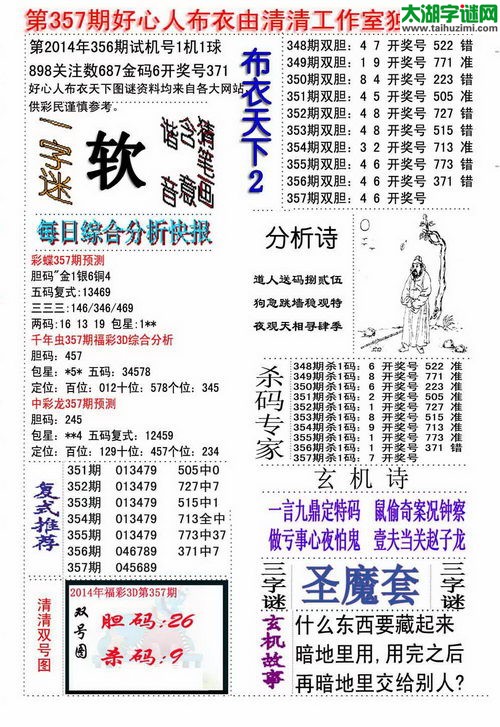 太湖字谜网
www.taihuzimi.com
第357期好心人布衣由清清工作室
第2014年356期试机号1机1球
898关注数687金码6开奖号371
好心人布衣天下图谜资料均来自各大网站,
供彩民谨慎参考。
一字迷
软
猜笔画
含寓
猜音
每日综合分析快报
彩蝶357期预测
胆码"金1银6铜4
五码复式:13469
三三三:146/346/469
两码:16 13 19 包星:1**
千年虫357期福彩3D综合分析
胆码: 457
包星: *5* 五码: 34578
定位: 百位: 012十位: 578个位: 345
中彩龙357期预测
胆码: 245
包星: **4 五码复式: 12459
定位: 百位: 129十位: 457个位: 234
复式推荐
351期 013479 505中0
352期 013479 727中7
353期 013479 515中1
354期 013479 713全中
355期 013479 773中37
356期 046789 371中7
357期 045689
清清双号图
2014年福彩3D第357期
双号图
胆码:26
杀码:9
布衣天下2
348期双胆: 4 7 开奖号 522 错
349期双胆: 1 9 开奖号 771 准
350期双胆: 4 6 开奖号 864 准
351期双胆: 4 5 开奖号 505 准
352期双胆: 4 8 开奖号 727 错
353期双胆: 4 8 开奖号 515 错
354期双胆: 3 2 开奖号 713 准
355期双胆: 4 7 开奖号 773 准
356期双胆: 4 6 开奖号 371 错
357期双胆: 4 6 开奖号
分析诗
道人送码捌贰伍
狗急跳墙稳观特
夜观天相寻肆季
杀码专家
348期杀1码: 6 开奖号 522 准
349期杀1码: 8 开奖号 771 准
350期杀1码: 9 开奖号 864 准
351期杀1码: 2 开奖号 505 准
352期杀1码: 1 开奖号 727 准
353期杀1码: 8 开奖号 515 准
354期杀1码: 9 开奖号 713 准
355期杀1码: 1 开奖号 773 准
356期杀1码: 1 开奖号 371 错
357期杀1码: 7 开奖号
玄机诗
一言九鼎定特码 鼠偷奇案况钟察
做亏事心夜怕鬼 壹夫当关赵子龙
三字谜
圣魔套
三字谜
玄机故事
什么东西要藏起来
暗地里用,用完之后
再暗地里交给别人?